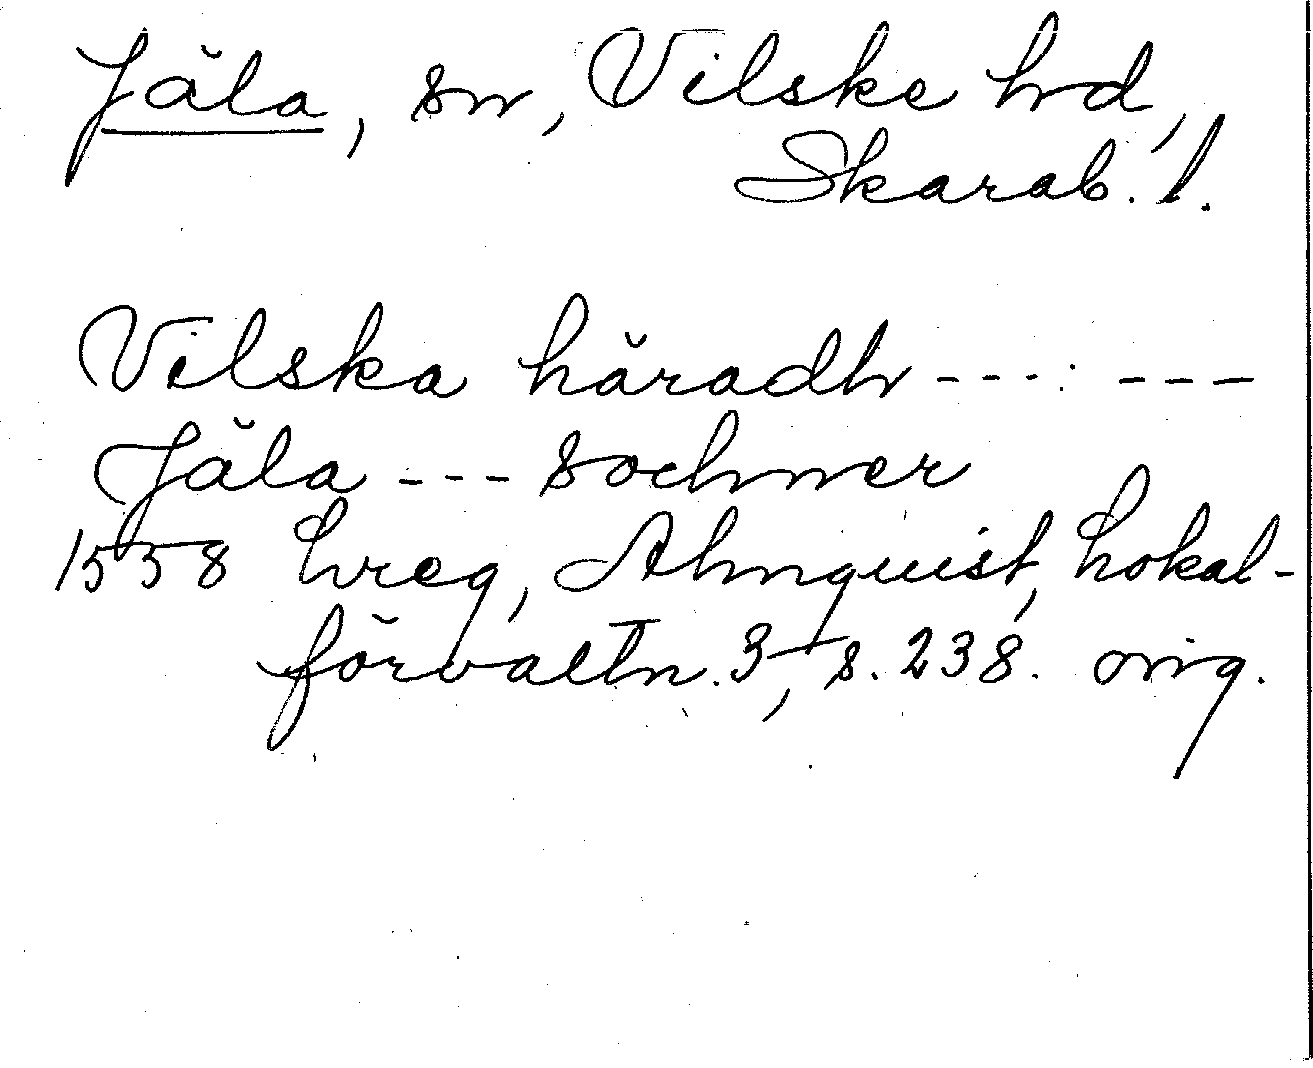 Jäla, sn, Vilske hrd,
Skarab. l.
Vilska häradh --- ---
Jäla --- sochnner
1558 hreg, Almquist, Lokal-
förvaltn. 3, s. 238. orig.